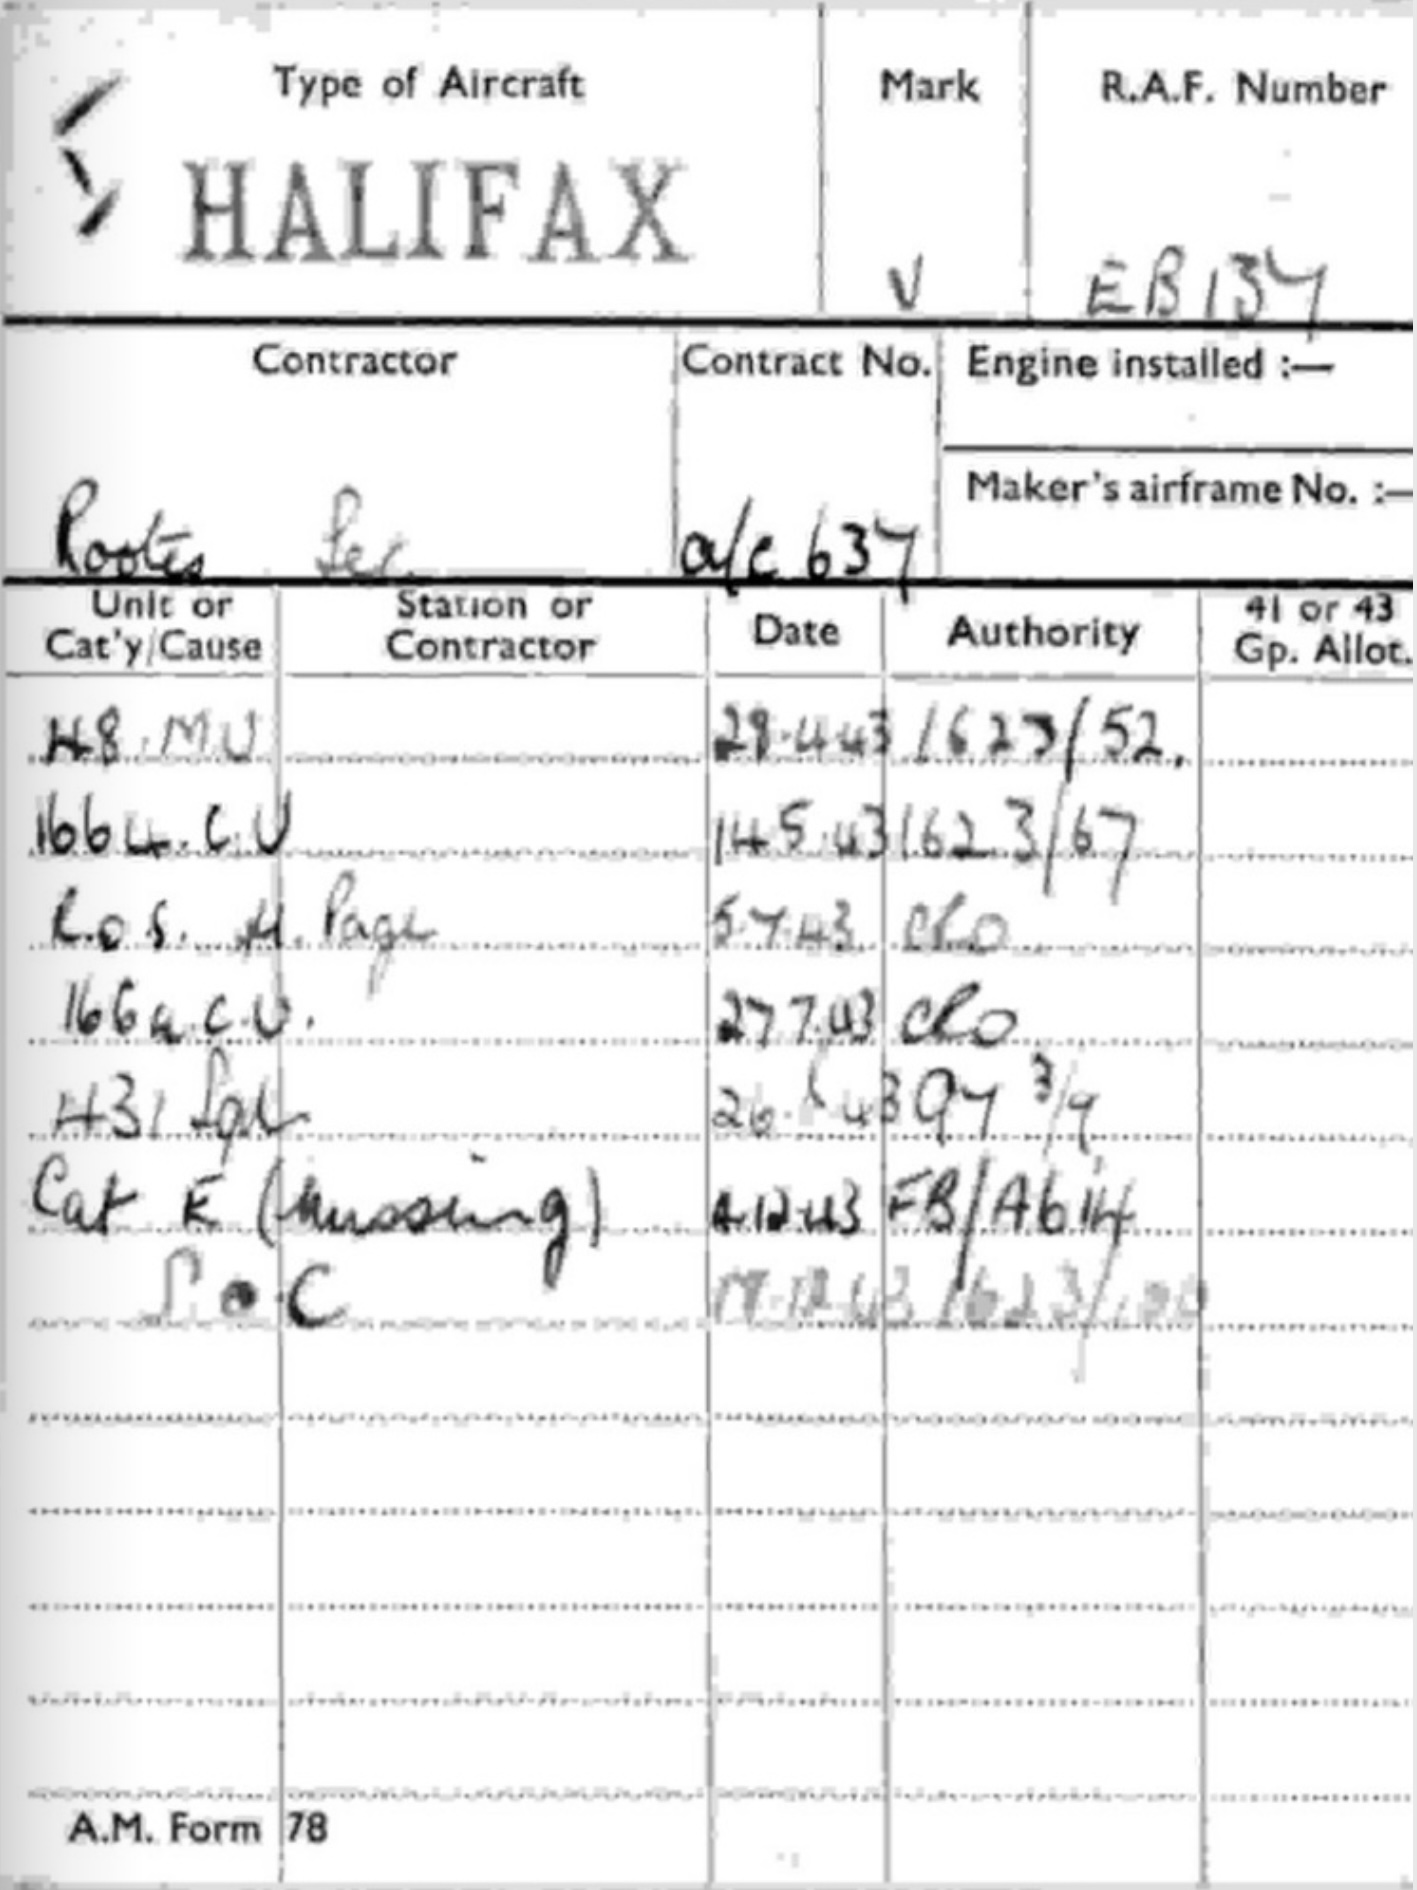 Type of Aircraft Mark R.A.F. Number
HALIFAX V EB137
Contractor Contract No. Engine installed :—
Maker's airframe No. :—
Rootes Sec a/c 637
Unit or Cat'y/Cause Station or Contractor Date Authority 41 or 43 Gp. Allot.
48 MU 28.4.43 1623/52.
1664.C.U 14.5.43 1623/67
R.o.S. H. Page 5.7.43 CRO
1664.C.U. 27.7.43 CRO
431 Sqn 26. 43 3/9
Cat E (missing) 4.12.43 FB/A614
S.O.C 17.12.43 1623/
A.M. Form 78